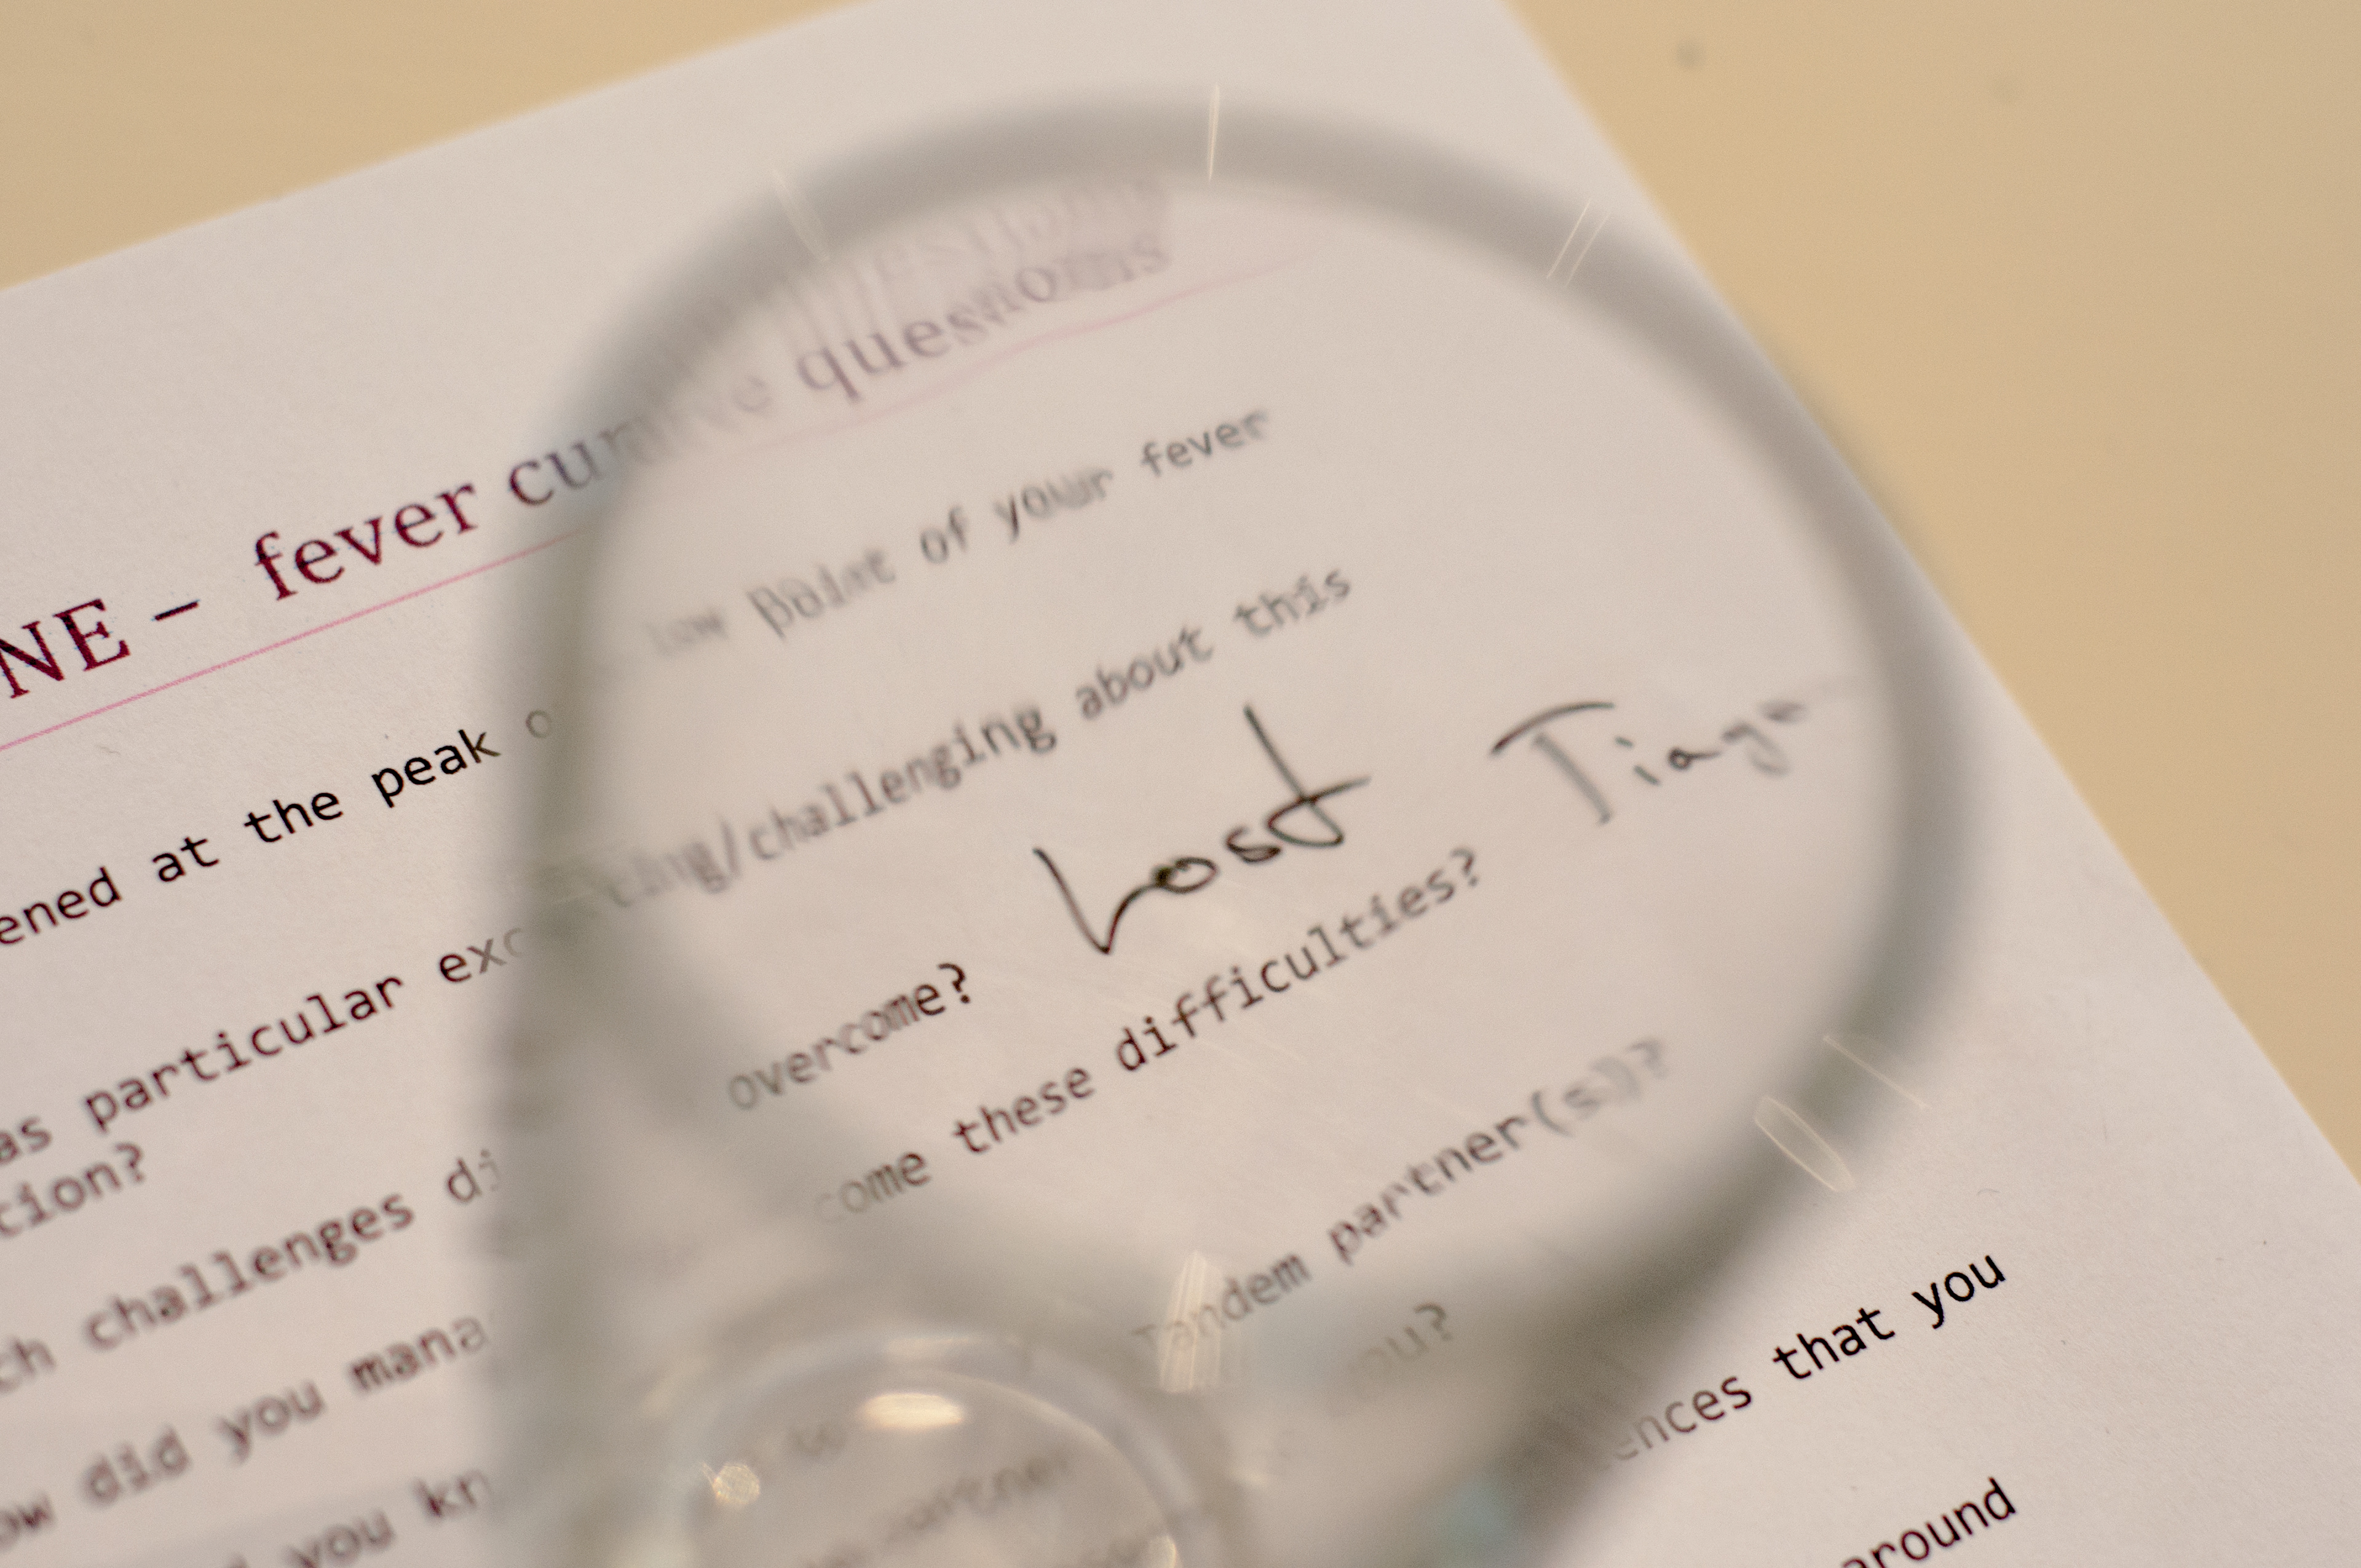 NE – fever curve questions
ened at the peak o low point of your fever
as particular exc ting/challenging about this
tion?
Lost Tiago
ch challenges di overcome?
ow did you mana come these difficulties?
you kn Tandem partner(s)?
to you?
partner ences that you
around